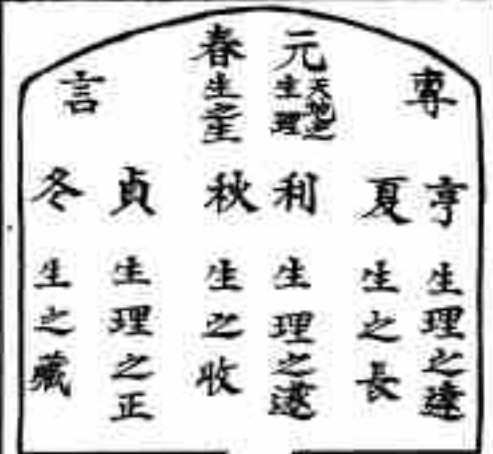 專
言
元
天地之
生理
春
生之生
亨
生理之達
夏
生之長
利
生理之遂
秋
生之收
貞
生理之正
冬
生之藏